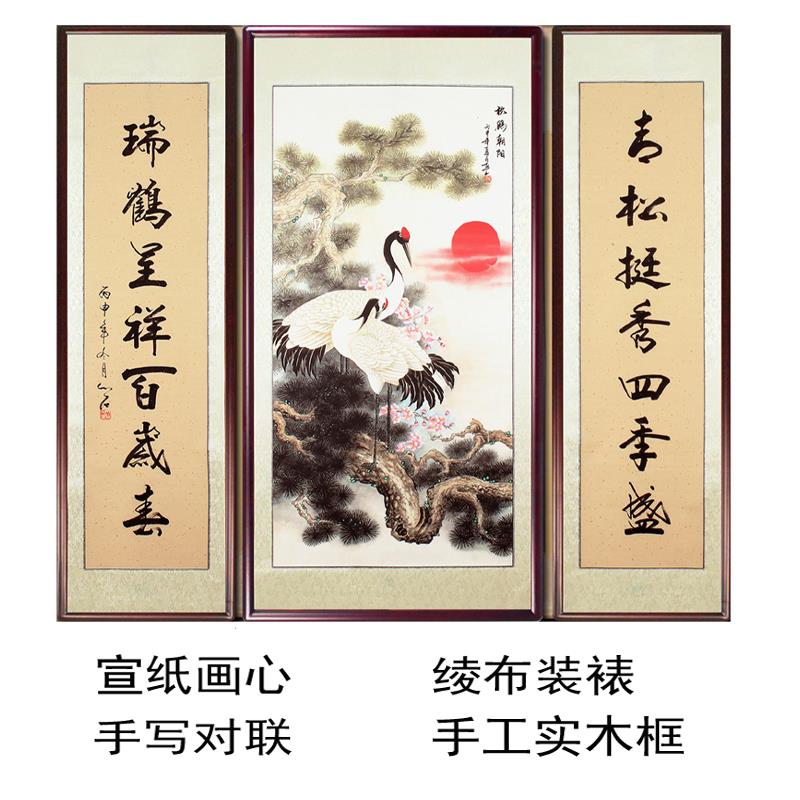 青松挺秀四季盛
松鹤朝阳
瑞鹤呈祥百岁春
丙申年冬月
宣纸画心
绫布装裱
手写对联
手工实木框